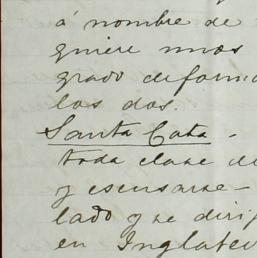 á nombre de
quiere unos
grado deforma
los dos.
Santa Cata -
toda clase de
y escusarse -
lado y se diri
en Inglate